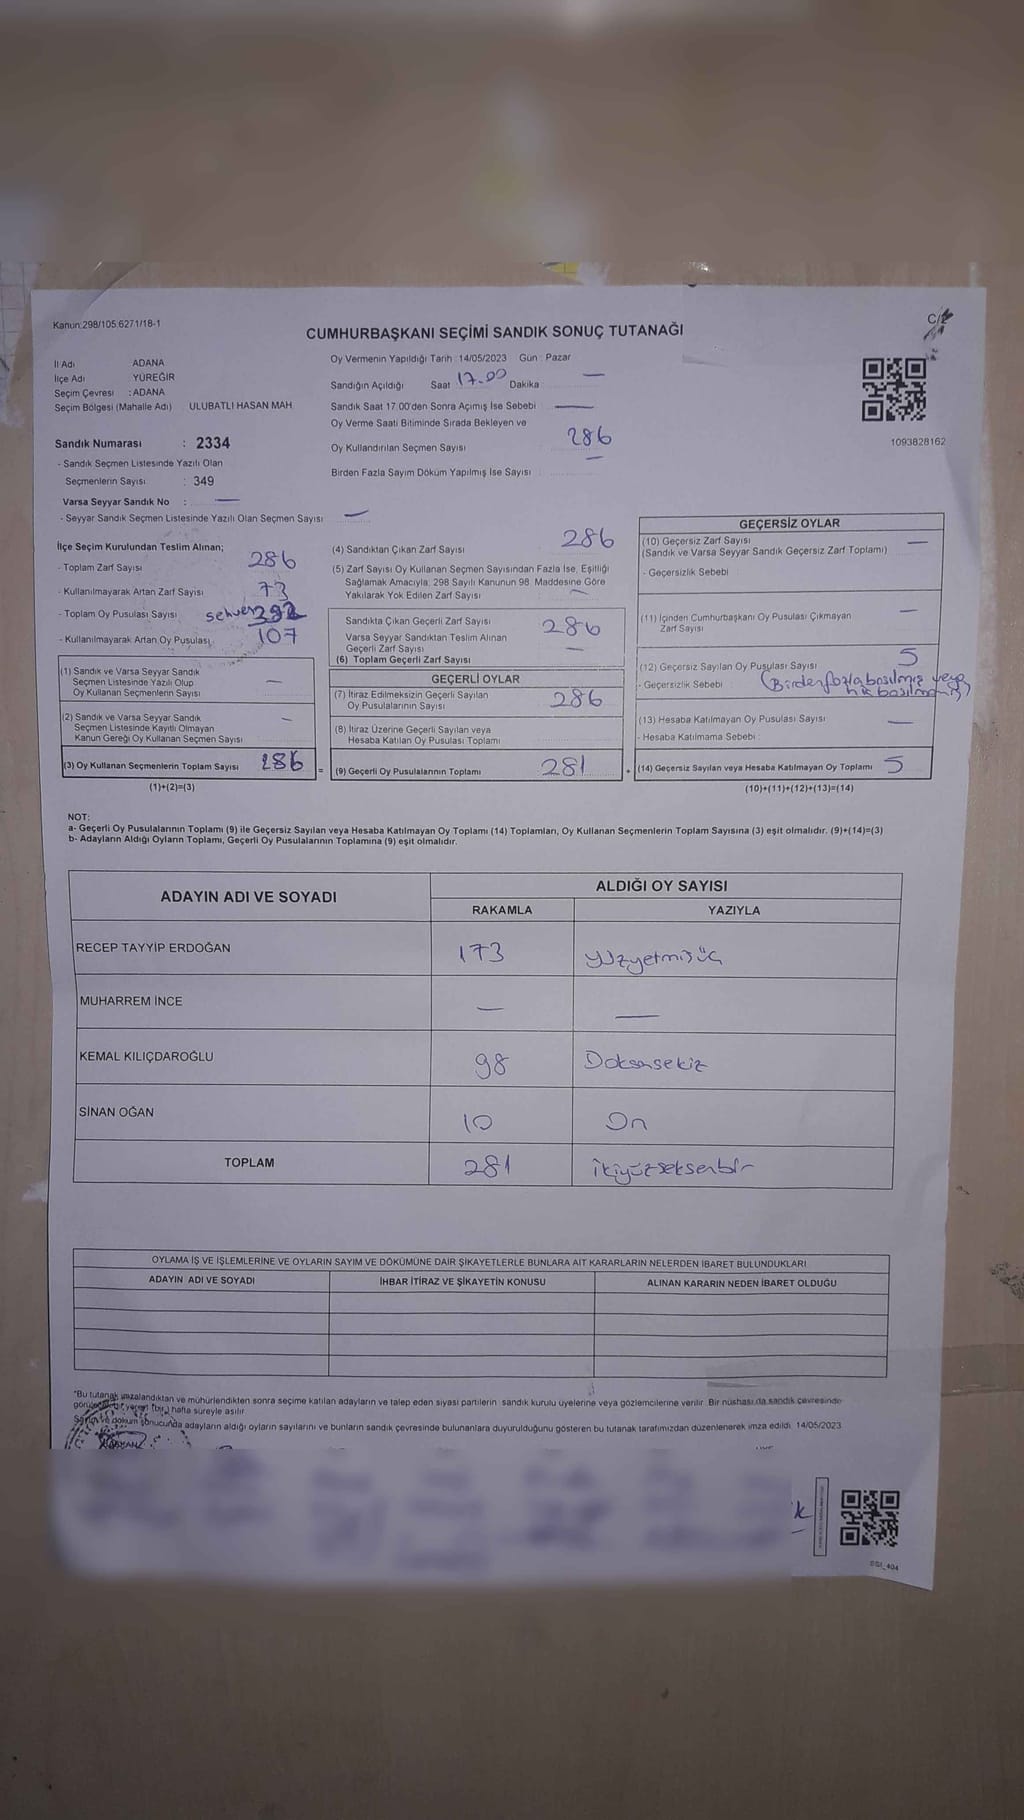 Kanun:298/105:6271/18-1
C/2
CUMHURBAŞKANI SEÇİMİ SANDIK SONUÇ TUTANAĞI
İl Adı ADANA
İlçe Adı YÜREĞİR
Seçim Çevresi : ADANA
Seçim Bölgesi (Mahalle Adı) ULUBATLI HASAN MAH.
Sandık Numarası : 2334
- Sandık Seçmen Listesinde Yazılı Olan
Seçmenlerin Sayısı : 349
Varsa Seyyar Sandık No : —
- Seyyar Sandık Seçmen Listesinde Yazılı Olan Seçmen Sayısı —
Oy Vermenin Yapıldığı Tarih : 14/05/2023 Gün : Pazar
Sandığın Açıldığı Saat 17.00 Dakika : —
Sandık Saat 17:00'den Sonra Açımış İse Sebebi —
Oy Verme Saati Bitiminde Sırada Bekleyen ve
Oy Kullandırılan Seçmen Sayısı 286
Birden Fazla Sayım Döküm Yapılmış İse Sayısı —
1093828162
İlçe Seçim Kurulundan Teslim Alınan;
- Toplam Zarf Sayısı 286
- Kullanılmayarak Artan Zarf Sayısı 73
- Toplam Oy Pusulası Sayısı
- Kullanılmayarak Artan Oy Pusulası 107
(1) Sandık ve Varsa Seyyar Sandık
Seçmen Listesinde Yazılı Olup
Oy Kullanan Seçmenlerin Sayısı —
(2) Sandık ve Varsa Seyyar Sandık
Seçmen Listesinde Kayıtlı Olmayan
Kanun Gereği Oy Kullanan Seçmen Sayısı —
(3) Oy Kullanan Seçmenlerin Toplam Sayısı 286
(1)+(2)=(3)
(4) Sandıktan Çıkan Zarf Sayısı 286
(5) Zarf Sayısı Oy Kullanan Seçmen Sayısından Fazla İse, Eşitliği
Sağlamak Amacıyla; 298 Sayılı Kanunun 98. Maddesine Göre
Yakılarak Yok Edilen Zarf Sayısı —
Sandıkta Çıkan Geçerli Zarf Sayısı 286
Varsa Seyyar Sandıktan Teslim Alınan
Geçerli Zarf Sayısı —
(6) Toplam Geçerli Zarf Sayısı
GEÇERLİ OYLAR
(7) İtiraz Edilmeksizin Geçerli Sayılan
Oy Pusulalarının Sayısı 286
(8) İtiraz Üzerine Geçerli Sayılan veya
Hesaba Katılan Oy Pusulası Toplamı
= (9) Geçerli Oy Pusulalarının Toplamı 281
GEÇERSİZ OYLAR
(10) Geçersiz Zarf Sayısı —
(Sandık ve Varsa Seyyar Sandık Geçersiz Zarf Toplamı)
- Geçersizlik Sebebi :
(11) İçinden Cumhurbaşkanı Oy Pusulası Çıkmayan —
Zarf Sayısı
(12) Geçersiz Sayılan Oy Pusulası Sayısı 5
- Geçersizlik Sebebi : (Birden fazla basılmış veya
hiç basılmamış)
(13) Hesaba Katılmayan Oy Pusulası Sayısı —
- Hesaba Katılmama Sebebi :
+ (14) Geçersiz Sayılan veya Hesaba Katılmayan Oy Toplamı 5
(10)+(11)+(12)+(13)=(14)
NOT:
a- Geçerli Oy Pusulalarının Toplamı (9) ile Geçersiz Sayılan veya Hesaba Katılmayan Oy Toplamı (14) Toplamları, Oy Kullanan Seçmenlerin Toplam Sayısına (3) eşit olmalıdır. (9)+(14)=(3)
b- Adayların Aldığı Oyların Toplamı, Geçerli Oy Pusulalarının Toplamına (9) eşit olmalıdır.
ADAYIN ADI VE SOYADI ALDIĞI OY SAYISI
RAKAMLA YAZIYLA
RECEP TAYYİP ERDOĞAN 173 yüzyetmişüç
MUHARREM İNCE — —
KEMAL KILIÇDAROĞLU 98 Doksansekiz
SİNAN OĞAN 10 On
TOPLAM 281 ikiyüzseksenbir
OYLAMA İŞ VE İŞLEMLERİNE VE OYLARIN SAYIM VE DÖKÜMÜNE DAİR ŞİKAYETLERLE BUNLARA AİT KARARLARIN NELERDEN İBARET BULUNDUKLARI
ADAYIN ADI VE SOYADI İHBAR İTİRAZ VE ŞİKAYETİN KONUSU ALINAN KARARIN NEDEN İBARET OLDUĞU
*Bu tutanak imzalandıktan ve mühürlendikten sonra seçime katılan adayların ve talep eden siyasi partilerin sandık kurulu üyelerine veya gözlemcilerine verilir. Bir nüshası da sandık çevresinde
görülecek bir yerde (bir) hafta süreyle asılır
Sayım ve döküm sonucunda adayların aldığı oyların sayılarını ve bunların sandık çevresinde bulunanlara duyurulduğunu gösteren bu tutanak tarafımızdan düzenlenerek imza edildi. 14/05/2023